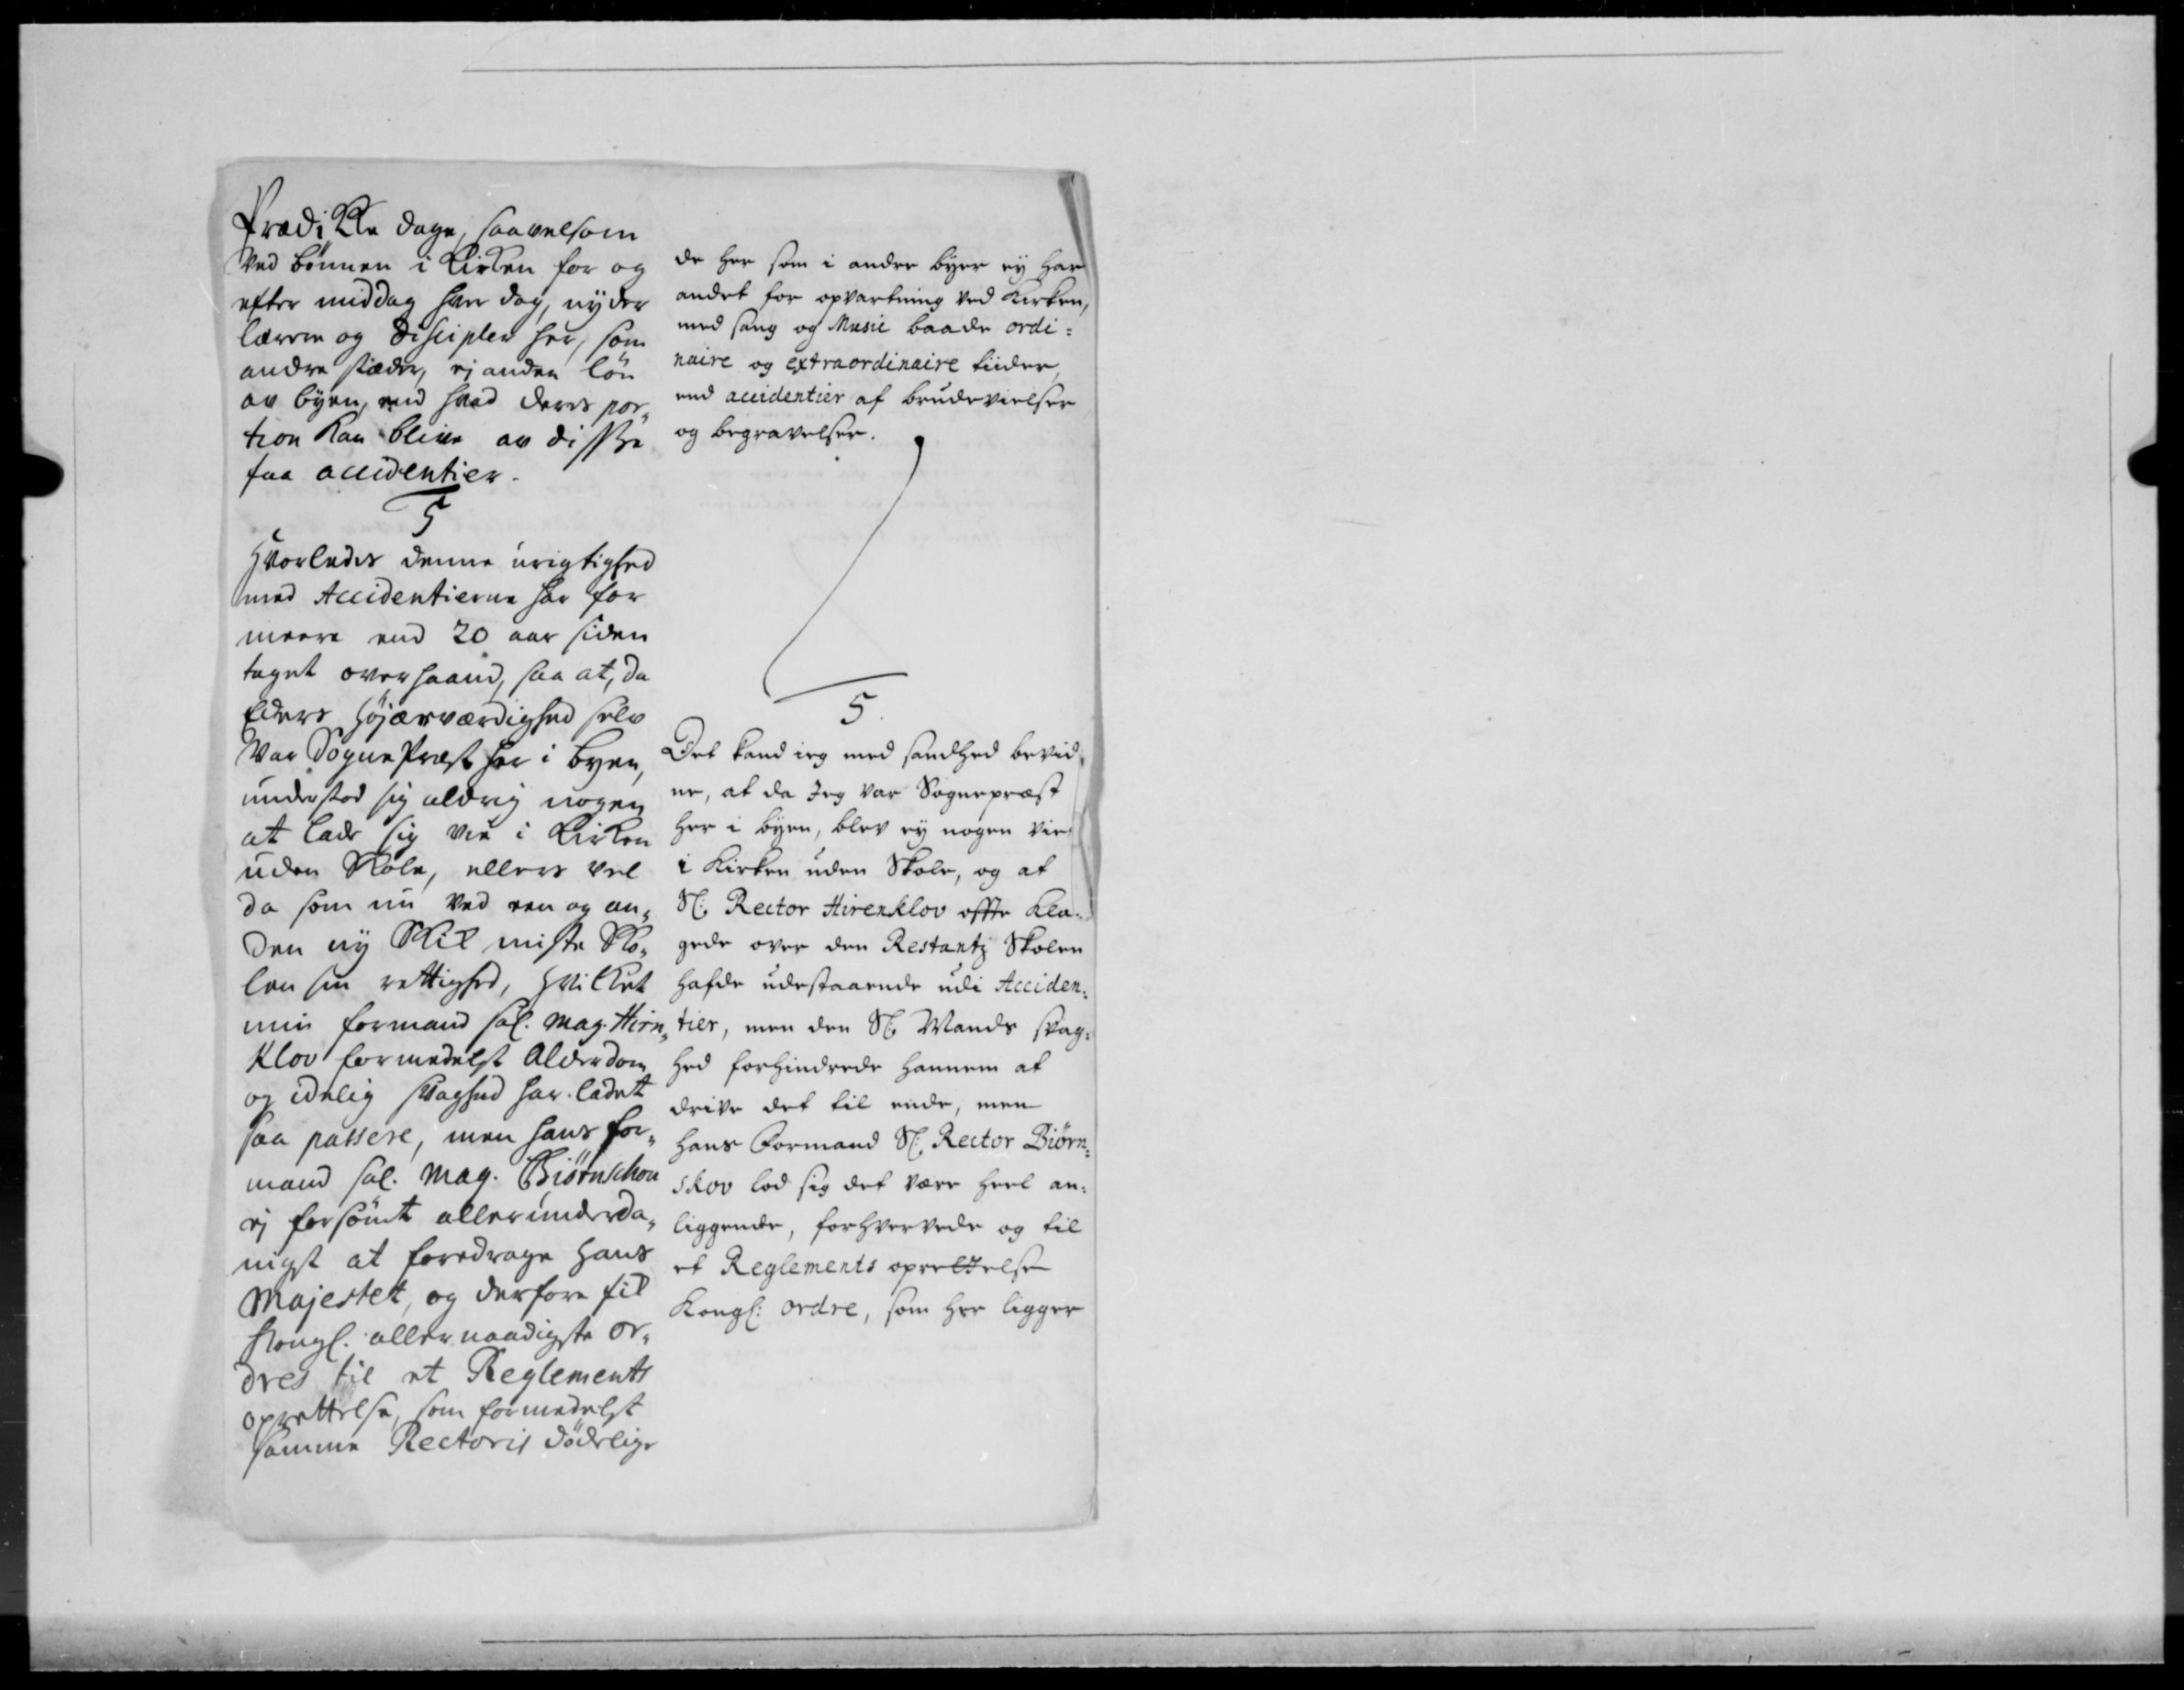 Prædikke dage, saavelsom
Ved bønnen i Kirken for og
efter middag hver dag, nyder
lærere og Discipler her, som
andre stæder, ej anden løn
av byen, end hvad deres por„
tion kan blive av disse
faa accidentier.
5
Hvorledes denne urigtighed
med Accidentierne har for
meere end 20 aar siden
taget overhaand, saa at, da
Eders Højærværdighed selv
Var Sogne Præst her i byen,
understod sig aldrig nogen
at lade sig vie i Kirken
uden Skole, ellers vel
da som nu ved een og an„
den ny Skik miste Sko„
len sin rettighed, hvilket
min formand sal. Mag. Hirn„
klov formedelst Alderdom
og idelig svaghed har ladet
saa passere, men hans for„
mand sal. Mag. Biørnschou
ej forsømt allerunderda„
nigst at foredrage Hans
Majestet, og derfore fik
Kongl. allernaadigste or„
dres til et Reglements
oprettelse, som formedelst
samme Rectoris dødelige
de her som i andre byer ey har
andet for opvartning ved Kirken,
med sang og Music baade ordi=
naire og extraordinaire tiider,
end accidentier af brudevielser
og begravelser.
5.
Det kand ieg med sandhed bevid
ne, at da Jeg var Sognepræst
her i byen, blev ey nogen vie
i Kirken uden Skole, og at
Sl: Rector Hirenklov offte kla=
gede over den Restantz Skolen
hafde udestaaende udi Acciden=
tier, men den Sl: Mands svag=
hed forhindrede hannem at
drive det til ende, men
hans Formand Sl: Rector Biørn=
skov lod sig det være heel an=
liggende, forhvervede og til
et Reglements oprettelse
Kongl: ordre, som her ligger